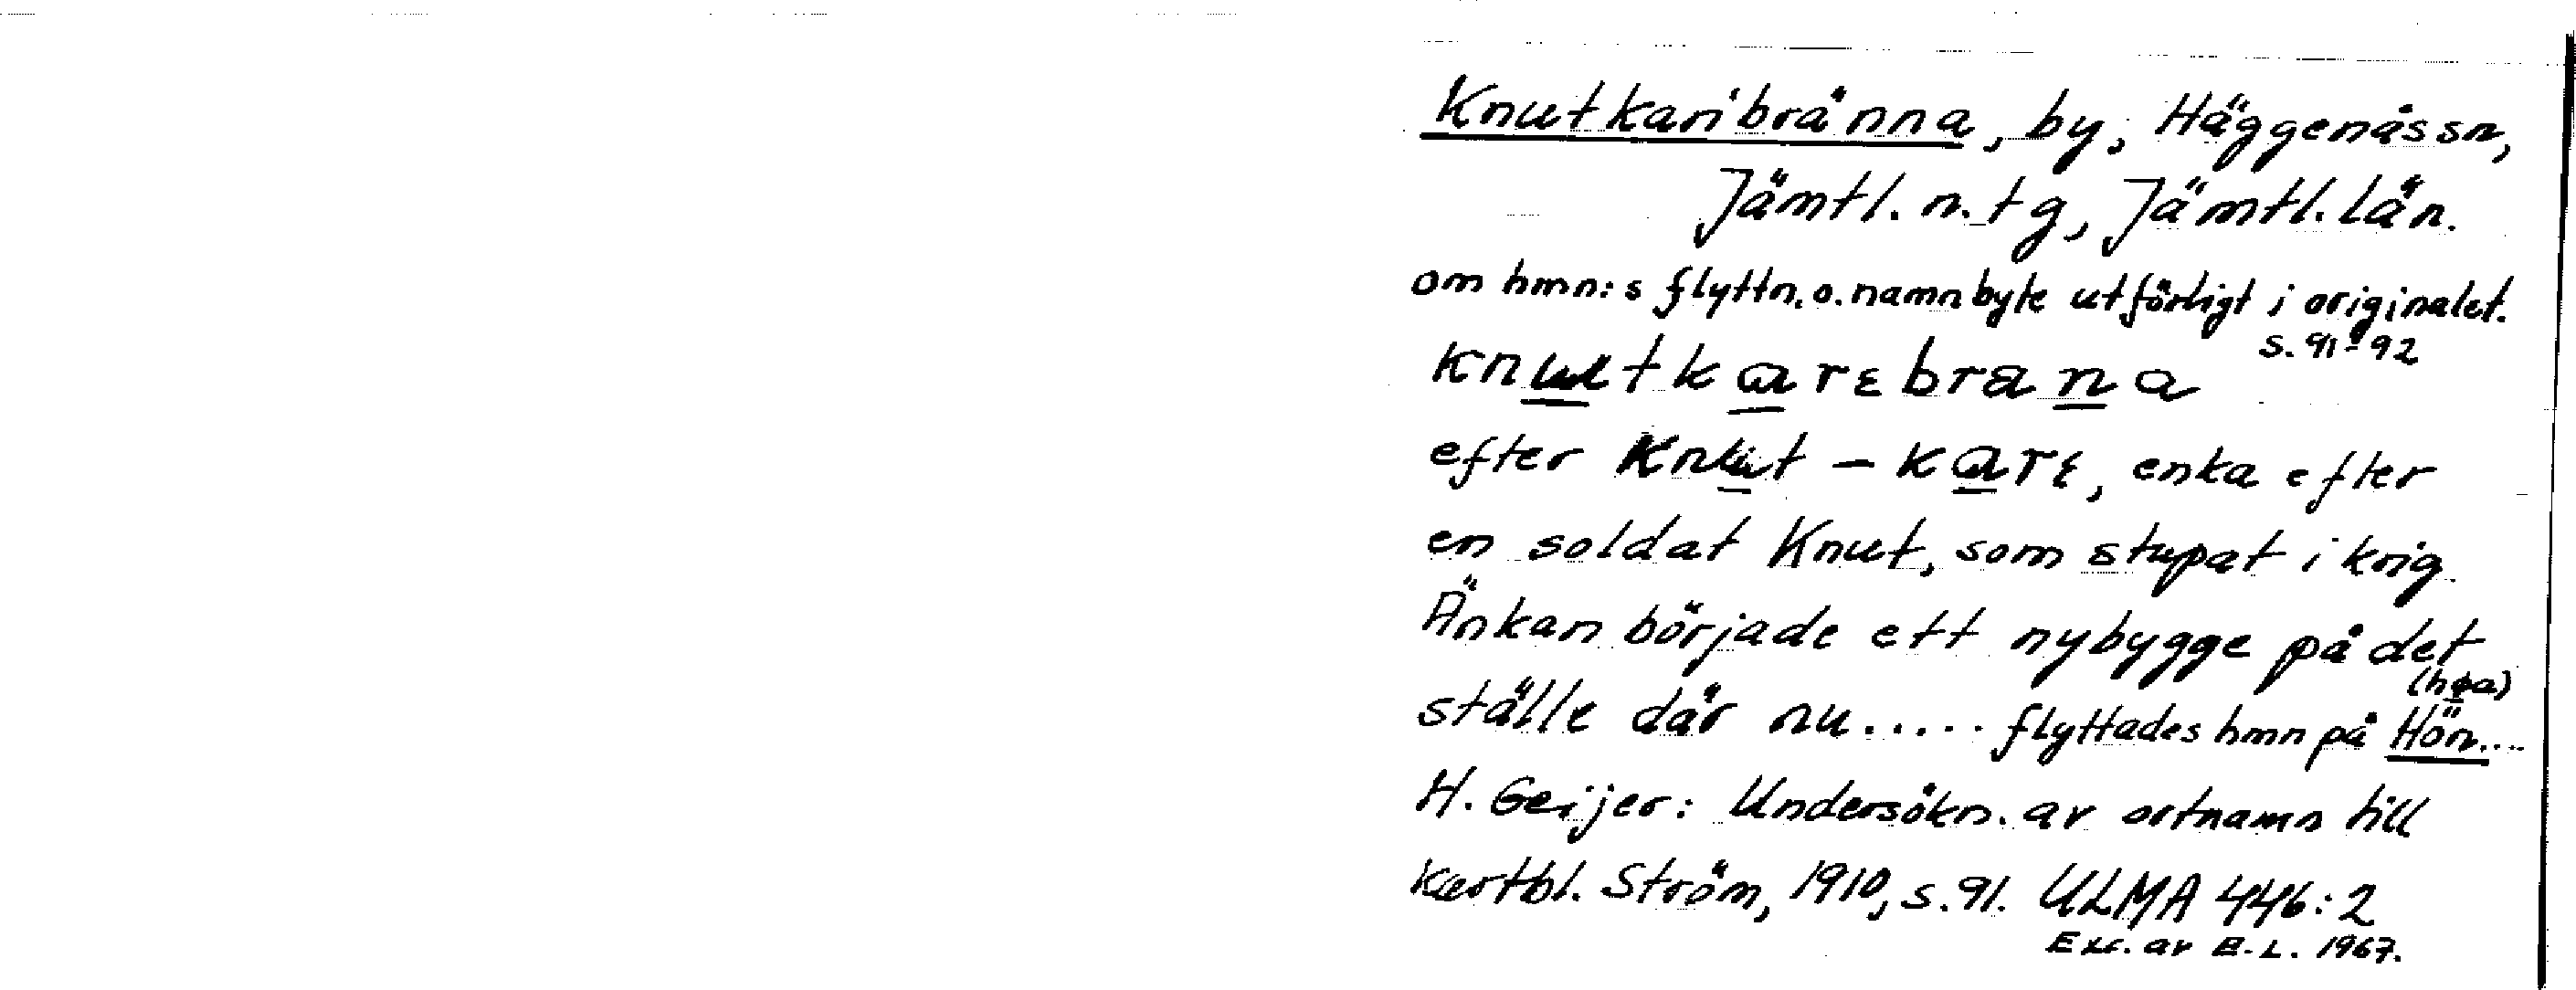 Knutkaribränna, by, Häggenås sn,
Jämtl. n. tg, Jämtl. län.
om hmn:s flyttn. o. namnbyte utförligt i originalet.
s. 91-92
knutkarɛbrana
efter Knut - karɛ, enka efter
en soldat Knut, som stupat i krig.
Änkan började ett nybygge på det
(høa)
ställe där nu..... flyttades hmn på Hön....
H. Geijer: Undersökn. av ortnamn till
kartbl. Ström, 1910, s. 91. ULMA 446:2
Exc. av E.L. 1967.